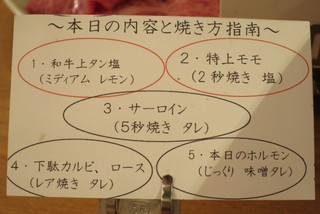 ～本日の内容と焼き方指南～
1・和牛上タン塩
(ミディアム レモン)
2・特上モモ
(2秒焼き 塩)
3・サーロイン
(5秒焼き タレ)
4・下駄カルビ、ロース
(レア焼き タレ)
5・本日のホルモン
(じっくり 味噌タレ)